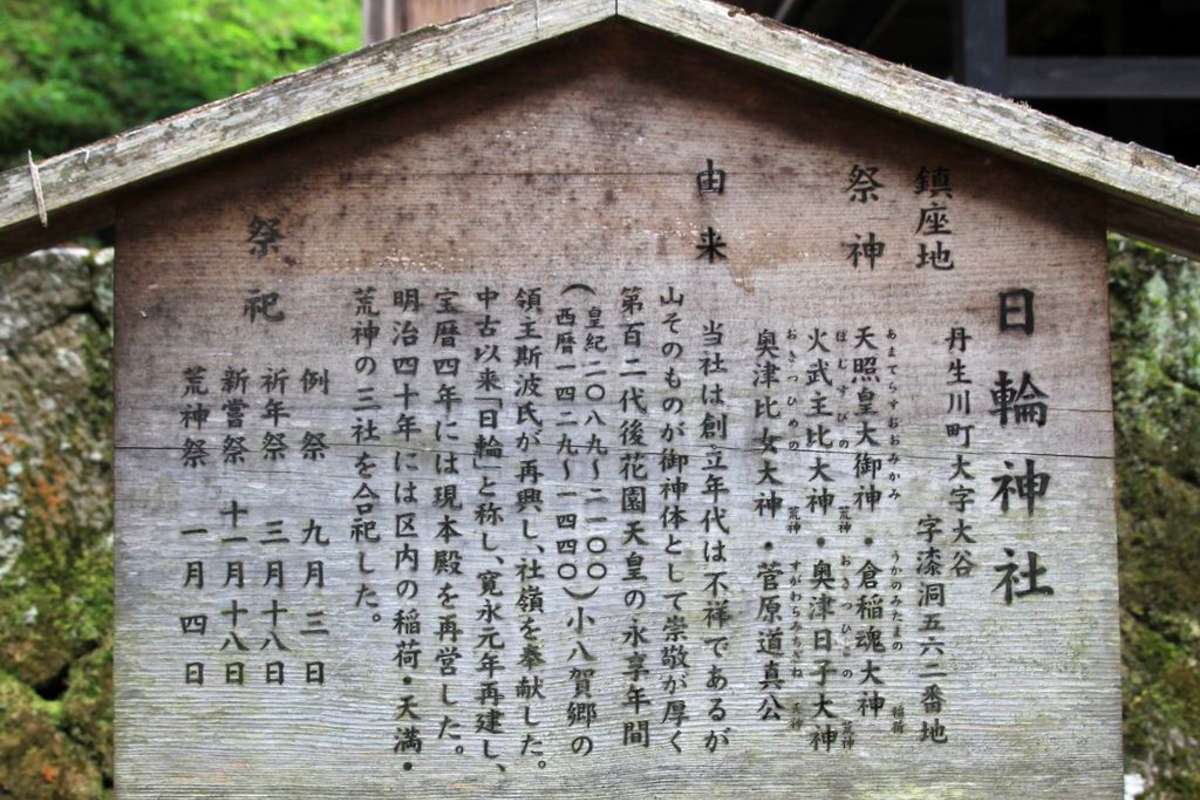 日輪神社
鎮座地
丹生川町大字大谷
字漆洞五六二番地
祭神
あまてらすおおみかみ うかのみたまの
天照皇大御神・倉稲魂大神 稲荷
ほむすびの おきつひこの
火武主比大神 荒神・奥津日子大神 荒神
おきつひめの すがわらみちざね
奥津比女大神 荒神・菅原道真公 天神
由来
当社は創立年代は不祥であるが
山そのものが御神体として崇敬が厚く
第百二代後花園天皇の永享年間
(皇紀二〇八九〜二一〇〇
西暦一四二九〜一四四〇)小八賀郷の
領王斯波氏が再興し、社嶺を奉献した。
中古以来「日輪」と称し、寛永元年再建し、
宝暦四年には現本殿を再営した。
明治四十年には区内の稲荷・天満・
荒神の三社を合祀した。
祭祀
例祭 九月三日
祈年祭 三月十八日
新嘗祭 十一月十八日
荒神祭 一月四日